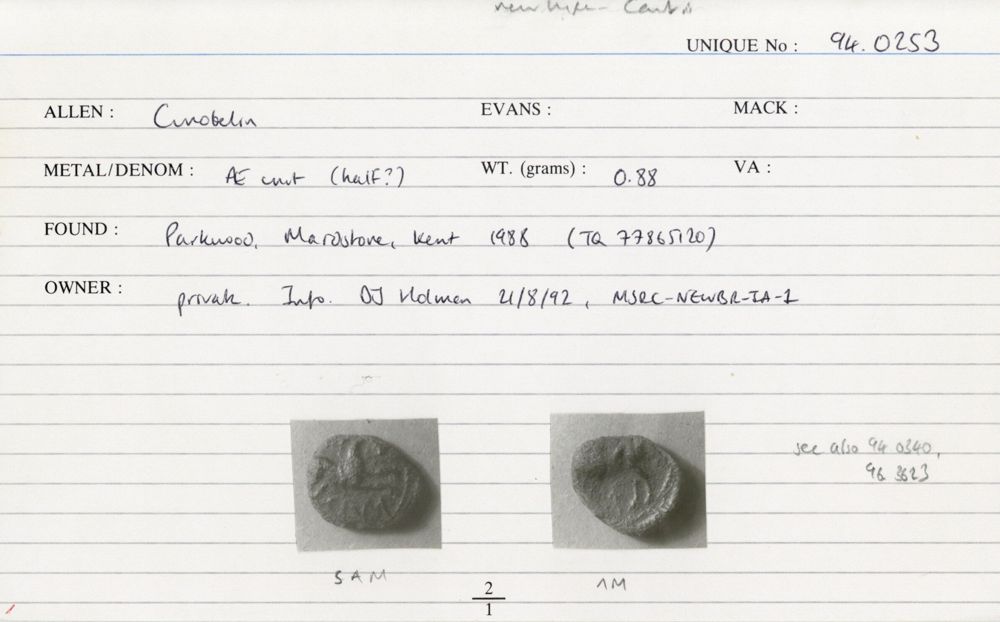 UNIQUE No : 94.0253
ALLEN : Cunobelin EVANS : MACK :
METAL/DENOM : Æ unit (half?) WT. (grams) : 0.88 VA :
FOUND : Parkwood, Maidstone, Kent 1988 (TQ 77865120)
OWNER : private. Info. DJ Holman 21/8/92, MSRC-NEWBR-IA-1
see also 94 0340,
96 3623
SAM
2
1